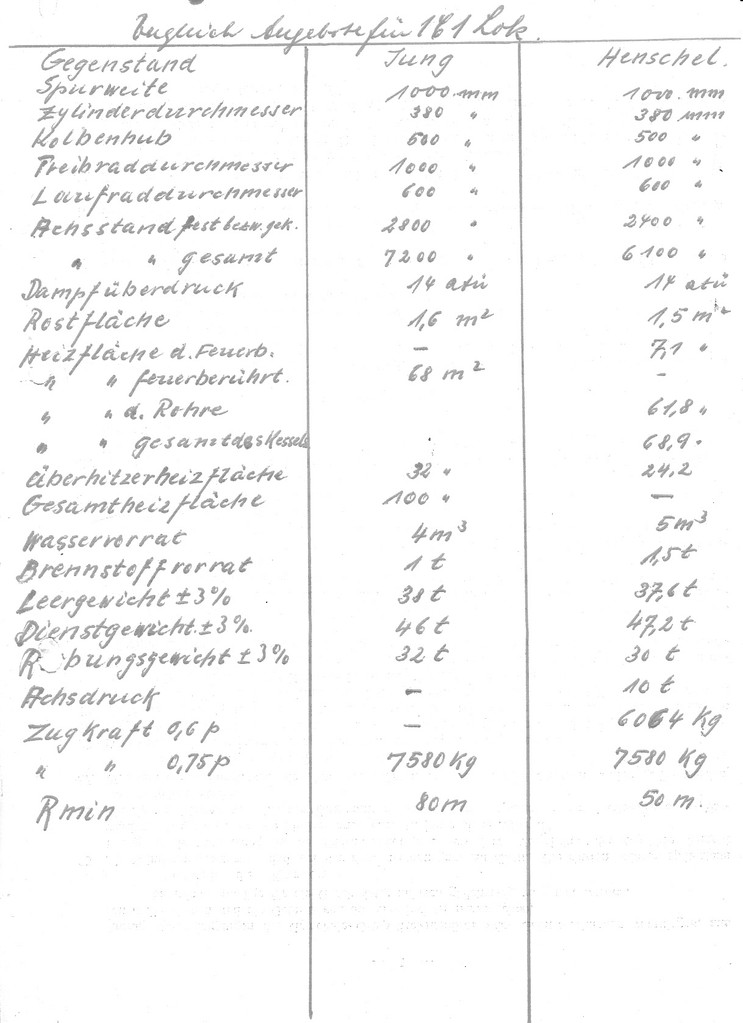 Vergleich Angebote für 1C1 Lok.
Gegenstand Jung Henschel.
Spurweite 1000 mm 1000 mm
Zylinderdurchmesser 380 " 380 mm
Kolbenhub 500 " 500 "
Treibraddurchmesser 1000 " 1000 "
Laufraddurchmesser 600 " 600 "
Achsstand fest bezw. gek. 2800 " 2400 "
" " gesamt 7200 " 6100 "
Dampfüberdruck 14 atü 14 atü
Rostfläche 1,6 m² 1,5 m²
Heizfläche d. Feuerb. — 7,1 "
" " feuerberührt. 68 m² —
" " d. Rohre 61,8 "
" " gesamt des Kessels 68,9 "
Überhitzerheizfläche 32 " 24,2
Gesamtheizfläche 100 " —
Wasservorrat 4 m³ 5 m³
Brennstoffvorrat 1 t 1,5 t
Leergewicht ± 3% 38 t 37,6 t
Dienstgewicht. ± 3% 46 t 47,2 t
Reibungsgewicht ± 3% 32 t 30 t
Achsdruck — 10 t
Zugkraft 0,6 p — 6064 Kg
" " 0,75 p 7580 Kg 7580 Kg
Rmin 80 m 50 m.